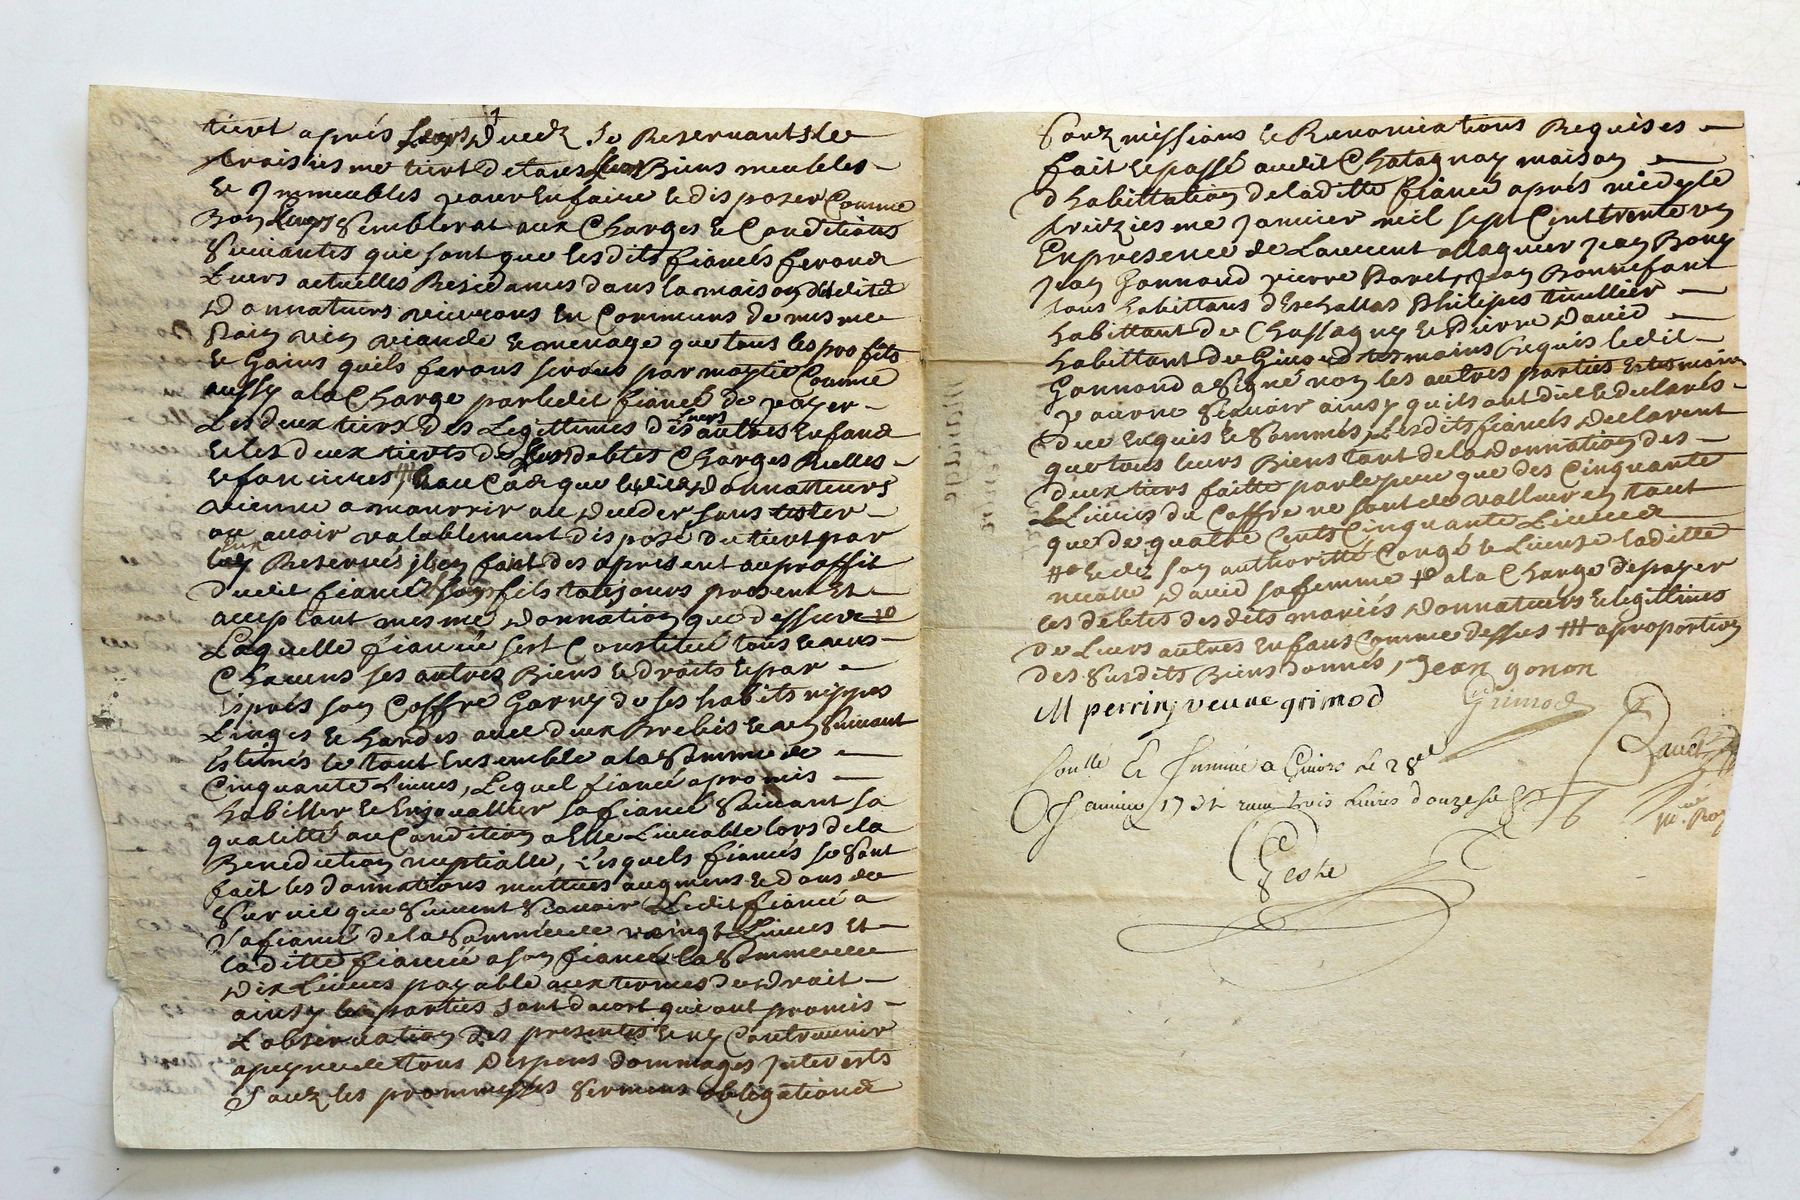 tiert après Leurs Dueds Se Reservants le
troisiesme tiert de tous Leurs Biens meubles
et Immeubles pour En faire et disposer Comme
Bon Leurs Semblerat aux Charges et Conditions
Suivantes que sont que lesdits fiancés feront
Luers actuelles Residances dans la maison desdits
Donnatuers vivrons En Communs de mesme
Pain vin viande et menage que tous les proffits
et Gains quils ferons serons par moytié Comme
aussy a la Charge par ledit fiancé de payer
Les deux tiers des Legittimes des Leurs autres Enfans
et les deux tierts de Leurs debtes Charges Rielles
et foncieres, # au Cas que lesdits Donnatteurs
vienne a mourrir ou deceder sans tester
ou avoir valablement dispose du tiert par
Eux Reservés ils En font des apresent au proffit
dudit fiancé Leurs fils toujours present Et
acceptant mesme Donnation que dessus
Laquelle fiancée sest Constitué tous et uns
Chacuns ses autres Biens et droits et par
Exprés son Coffre Garny de ses habits nippes
Linges et hardes avec deux Brebis et Leur Suivant
Estimés le tout Ensemble a la Somme de
Cinquante Livres, Lequel fiancé a promis
habiller et Enjouallier sa fiancé Suivant sa
qualitté ou Condition a Elle Livrable lors de la
Benediction nuptialle, Lesquels fiancés se sont
fait les donnations muttues augmens et dons de
Survie que Suivent Scavoir Ledit fiancé a
Sa fiancé de la Somme de vaingt Livres Et
laditte fiancée a son fiancé la Somme de
Dix Livres payable aux termes du Droit
ainsy les parties sont dacort qui ont promis
L'observation des presentes et ny Contrevenir
a peyne de tous Despens dommages Interests
Souz les prommesses Sermens obligations
Souzmissions et Renonciations Requises
fait et passé audit Chatagnay maison
d habittation de laditte fiancé après midy le
seiziesme Janvier mil sept Cent trente un
En presence de Laurent allagnier Jean Bony
Jean Gonnond pierre Baret, Jean Bonnefont
tous habittans d'Eschallas Philipes tuellier
habittant de Chassagny et Pierre David
habittant de Givord tesmoins Requis ledit
Gonnond a Signé non les autres parties et tesmoins
pour ne Scavoir ainsy quils ont dit et declarés
duee Enquis et Sommés, Lesdits fiancés Declarent
que tous leurs Biens tant de la donnation des
deux tiers faitte par le pere que des Cinquante
Livres du Coffre ne sont de valluer en tout
que de quatre Cents Cinquante Livres
# et de son authoritté Congé et License laditte
David sa femme # a la Charge de payer
les debtes desdits mariés Donnateurs et legittimes
de Luers autres Enfans Comme dessus ### a proportion
des Susdits Biens donnés, Jean gonon
M perrin veuve grimod Grimod
Conllé Et Insinué a Givors Le 28e
Janvier 1731 receu trois Livres douze sols
David
Geste